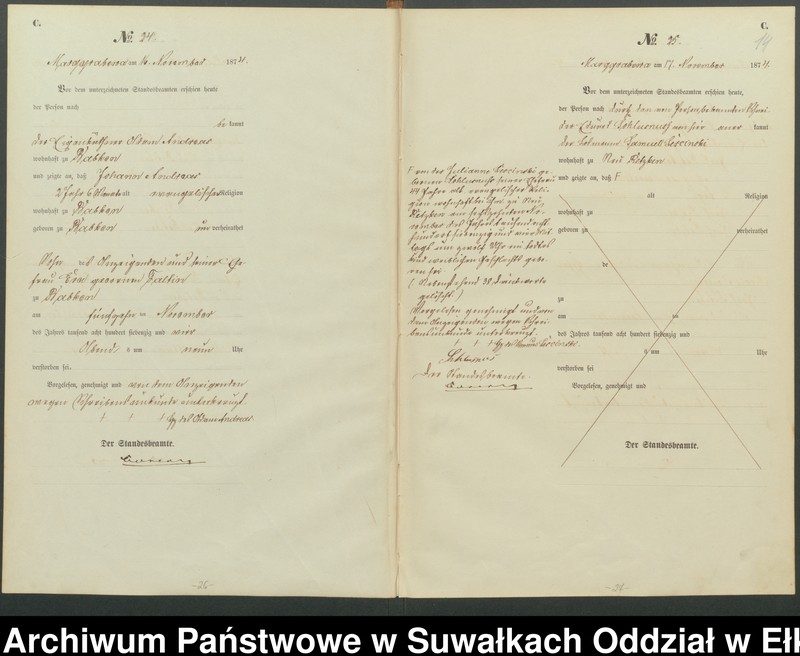 C.
No. 24.
Marggrabowa am 16. November 1874.
Vor dem unterzeichneten Standesbeamten erschien heute
der Person nach
be kannt
der Eigenkäthner Adam Andreas
wohnhaft zu Babken
und zeigte an, daß Johann Andreas
2 Jahr 6 Monate alt evangelischer Religion
wohnhaft zu Babken
geboren zu Babken un verheirathet
Sohn des Anzeigenden und seiner Ehe-
frau Eva geborenen Faltin
zu Babken
am fünfzehn ten November
des Jahres tausend acht hundert siebenzig und vier
Abends um neun Uhr
verstorben sei.
Vorgelesen, genehmigt und von dem Anzeigenden
wegen Schreibensunkunde unterkreuzt
† † † Hz. des Adam Andreas
Der Standesbeamte.
-26-
C.
14
No. 25.
Marggrabowa am 17. November 1874.
Vor dem unterzeichneten Standesbeamten erschien heute,
der Person nach durch den von Person bekannten
der aner kannt
der Samuel
wohnhaft zu Neu Retzken
und zeigte an, daß F
alt Religion
wohnhaft zu
geboren zu verheirathet
de
zu
am ten
des Jahres tausend acht hundert siebenzig und
um Uhr
verstorben sei
Vorgelesen, genehmigt und
Der Standesbeamte.
F von der Julianne
44 Jahre alt, evangelischer Reli-
gion wohnhaft bei ihm zu Neu
Retzken am sechszehnten No-
vember des Jahres tausend acht
hundert siebenzig und vier Mit-
tags um zwölf Uhr ein todtes
Kind weiblichen Geschlechts gebo-
ren sei
(Nebenstehend 38 Druckworte
gelöscht)
Vorgelesen genehmigt und von
dem Anzeigenden wegen Schrei-
bensunkunde unterkreuzt.
† † † Hz. des
Der Standesbeamte
-27-
Archiwum Państwowe w Suwałkach Oddział w Ełk